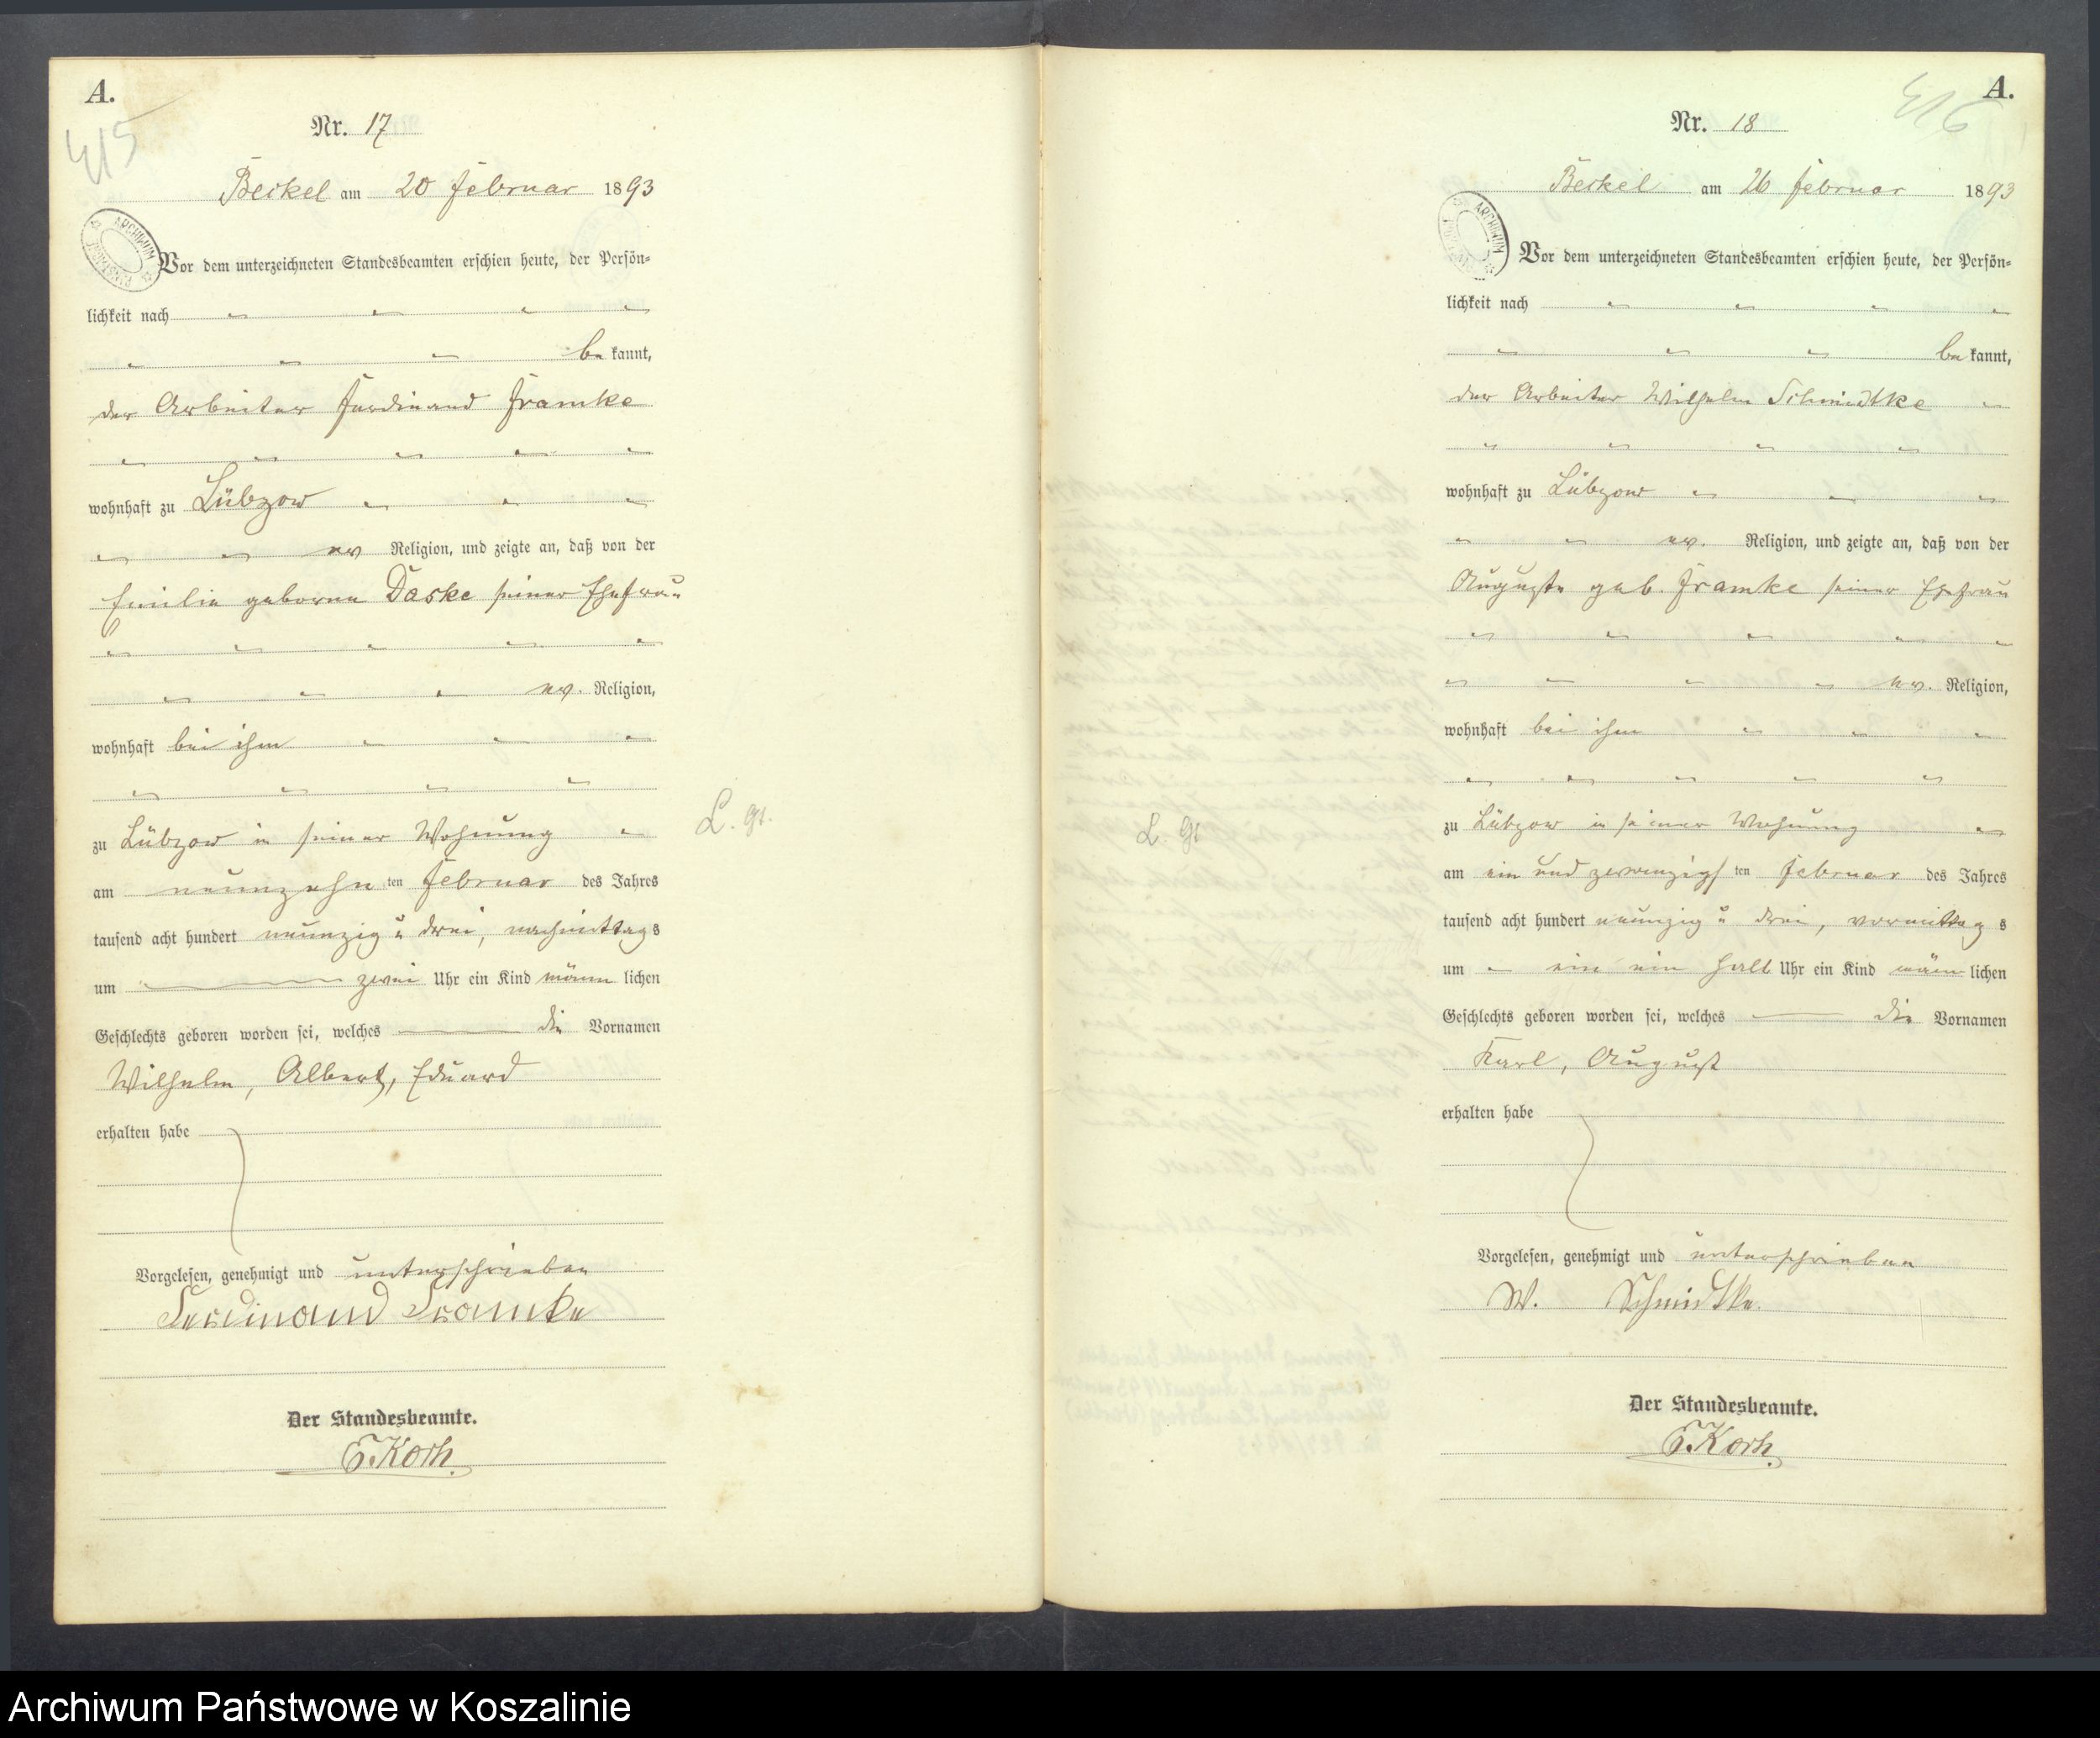 A.
415
Nr. 17
Beckel am 20 Februar 1893
Vor dem unterzeichneten Standesbeamten erschien heute, der Persön=
lichkeit nach
be kannt,
der Arbeiter Ferdinand Framke
wohnhaft zu Lübzow
ev Religion, und zeigte an, daß von der
Emilie geborne Daske seiner Ehefrau
ev. Religion,
wohnhaft bei ihm
zu Lübzow in seiner Wohnung
am neunzehn ten Februar des Jahres
tausend acht hundert neunzig u drei, nachmittag s
um zwei Uhr ein Kind männ lichen
Geschlechts geboren worden sei, welches die Vornamen
Wilhelm, Albert, Eduard
erhalten habe
Vorgelesen, genehmigt und unterschrieben
Ferdinand Framke
Der Standesbeamte.
E. Koch.
L. Gt.
A.
416
Nr. 18
Beckel am 26 Februar 1893
Vor dem unterzeichneten Standesbeamten erschien heute, der Persön=
lichkeit nach
be kannt,
der Arbeiter Wilhelm Schmidtke
wohnhaft zu Lübzow
ev. Religion, und zeigte an, daß von der
Auguste geb. Framke seiner Ehefrau
ev. Religion,
wohnhaft bei ihm
L. Gt
zu Lübzow in seiner Wohnung
am ein und zwanzigs ten Februar des Jahres
tausend acht hundert neunzig u drei, vormittag s
um ein ein halb Uhr ein Kind männ lichen
Geschlechts geboren worden sei, welches die Vornamen
Karl, August
erhalten habe
Vorgelesen, genehmigt und unterschrieben
W. Schmidtke.
Der Standesbeamte.
E. Koch.
Archiwum Państwowe w Koszalinie